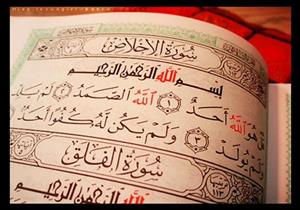 سُورَةُ الْإِخْلَاصِ
بِسْمِ اللَّهِ الرَّحْمَٰنِ الرَّحِيمِ
قُلْ هُوَ اللَّهُ أَحَدٌ ١ اللَّهُ الصَّمَدُ ٢ لَمْ يَلِدْ
وَلَمْ يُولَدْ ٣ وَلَمْ يَكُن لَّهُ كُفُوًا أَحَدٌ
سُورَةُ الْفَلَقِ
بِسْمِ اللَّهِ الرَّحْمَٰنِ الرَّحِيمِ